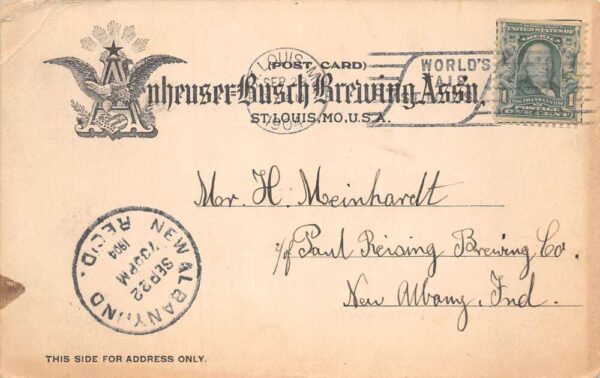 (POST CARD)
Anheuser-Busch Brewing Ass'n.
ST. LOUIS, MO., U.S.A.
ST. LOUIS, MO.
SEP 22
1904
WORLD'S
FAIR
UNITED STATES OF AMERICA
1 FRANKLIN 1
Mr. H. Meinhardt
c/o Paul Reising Brewing Co.
New Albany, Ind.
NEW ALBANY, IND.
SEP 22
7 30 PM
1904
REC'D.
THIS SIDE FOR ADDRESS ONLY.